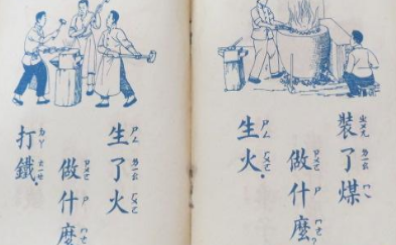 裝了煤
做什麼
生火。
生了火
做什麼
打鐵。